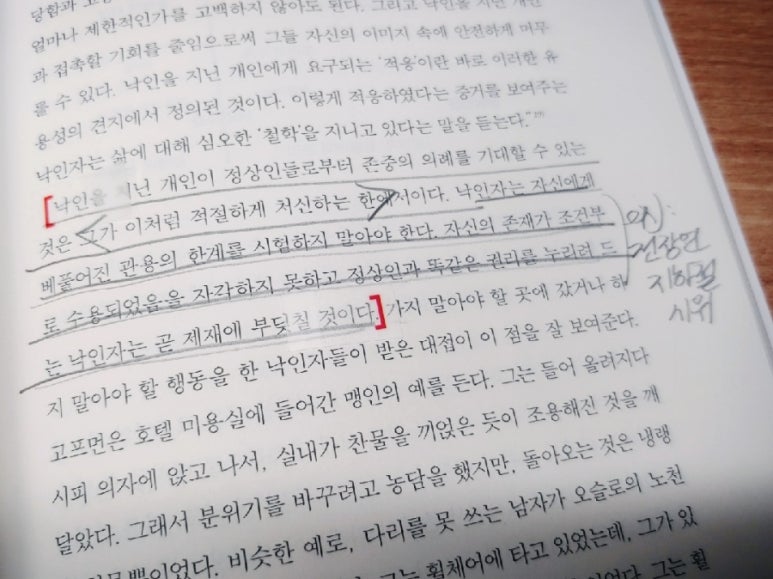 당함과 고
얼마나 제한적인가를 고백하지 않아도 된다. 그리고 낙인을 지닌 개인
과 접촉할 기회를 줄임으로써 그들 자신의 이미지 속에 안전하게 머무
를 수 있다. 낙인을 지닌 개인에게 요구되는 '적응'이란 바로 이러한 유
용성의 견지에서 정의된 것이다. 이렇게 적응하였다는 증거를 보여주는
낙인자는 삶에 대해 심오한 '철학'을 지니고 있다는 말을 듣는다."
[낙인을 지닌 개인이 정상인들로부터 존중의 의례를 기대할 수 있는
것은 그가 이처럼 적절하게 처신하는 한에서이다. 낙인자는 자신에게
베풀어진 관용의 한계를 시험하지 말아야 한다. 자신의 존재가 조건부
로 수용되었음을 자각하지 못하고 정상인과 똑같은 권리를 누리려 드
는 낙인자는 곧 제재에 부딪칠 것이다.] 가지 말아야 할 곳에 갔거나 하
지 말아야 할 행동을 한 낙인자들이 받은 대접이 이 점을 잘 보여준다.
고프먼은 호텔 미용실에 들어간 맹인의 예를 든다. 그는 들어 올려지다
시피 의자에 앉고 나서, 실내가 찬물을 끼얹은 듯이 조용해진 것을 깨
달았다. 그래서 분위기를 바꾸려고 농담을 했지만, 돌아오는 것은 냉랭
이었다. 비슷한 예로, 다리를 못 쓰는 남자가 오슬로의 노천
그는 휠체어에 타고 있었는데, 그가 있
그는 휠
예시:
전장연
지하철
시위